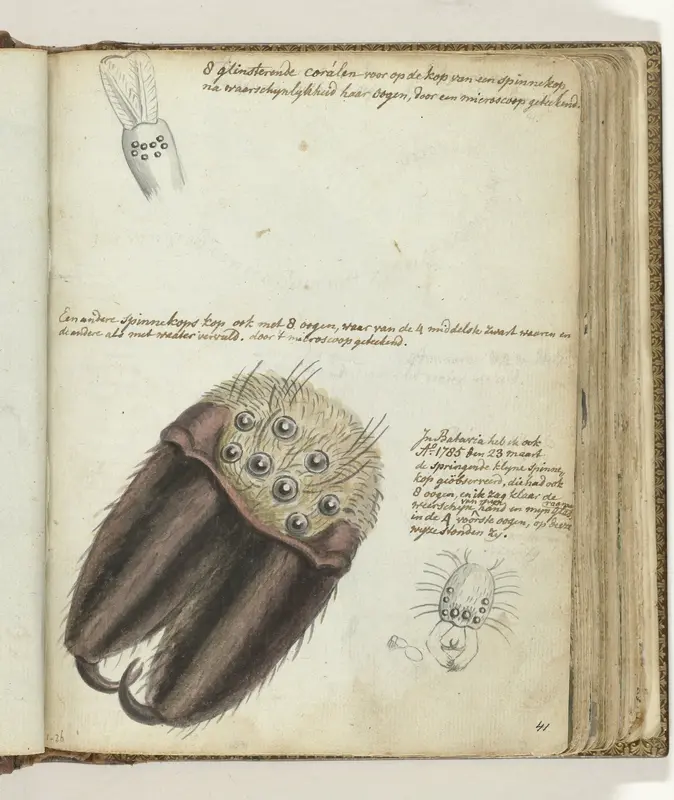 8 glinsterende corálen voor op de kop van een spinnekop,
na waarschynlykheid haar oogen, door een microscoop geteekend.
Een andere spinnekops kop ook met 8 oogen, waar van de 4 middelste zwart waaren en
de andere als met water vervuld. door 't microscoop geteekend.
In Batavia heb ik ook
Aº. 1785 den 23 maart
de springende klyne spinne
kop geobserveerd, die had ook
8 oogen, en ik zag klaar de
weerschyn van myn hand en
in de 4 voorste oogen, op deeze
wyze stonden zy.
41